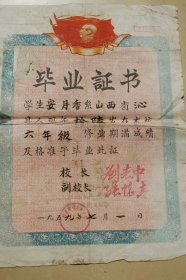 毕业证书
学生安月香系山西省沁
县人现年拾陆岁在本校
六年级修业期满成绩
及格准予毕业此证
校长
副校长
一九五九年七月一日